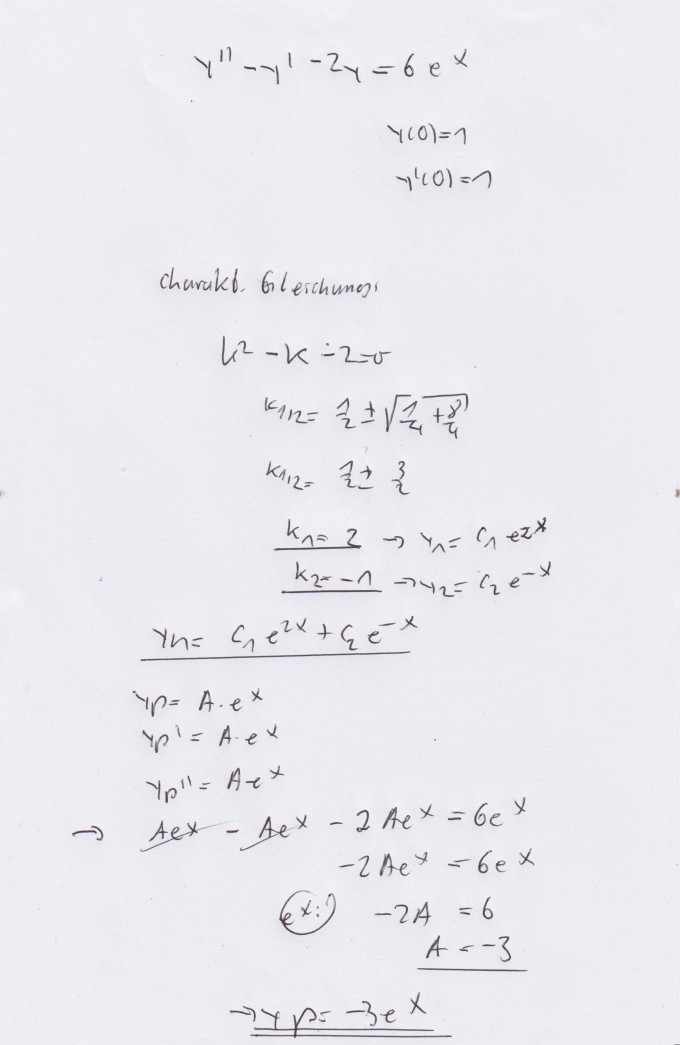 y'' - y' - 2y = 6 e^x
y(0) = 1
y'(0) = 1
charakt. Gleichung:
k² - k - 2 = 0
k1,2 = 1/2 ± √(1/4 + 8/4)
k1,2 = 1/2 ± 3/2
k1 = 2 → y1 = C1 e^2x
k2 = -1 → y2 = C2 e^-x
yh = C1 e^2x + C2 e^-x
yp = A · e^x
yp' = A · e^x
yp'' = A e^x
→ Ae^x - Ae^x - 2 Ae^x = 6e^x
-2 Ae^x = 6 e^x
e^x: -2A = 6
A = -3
→ yp = -3e^x